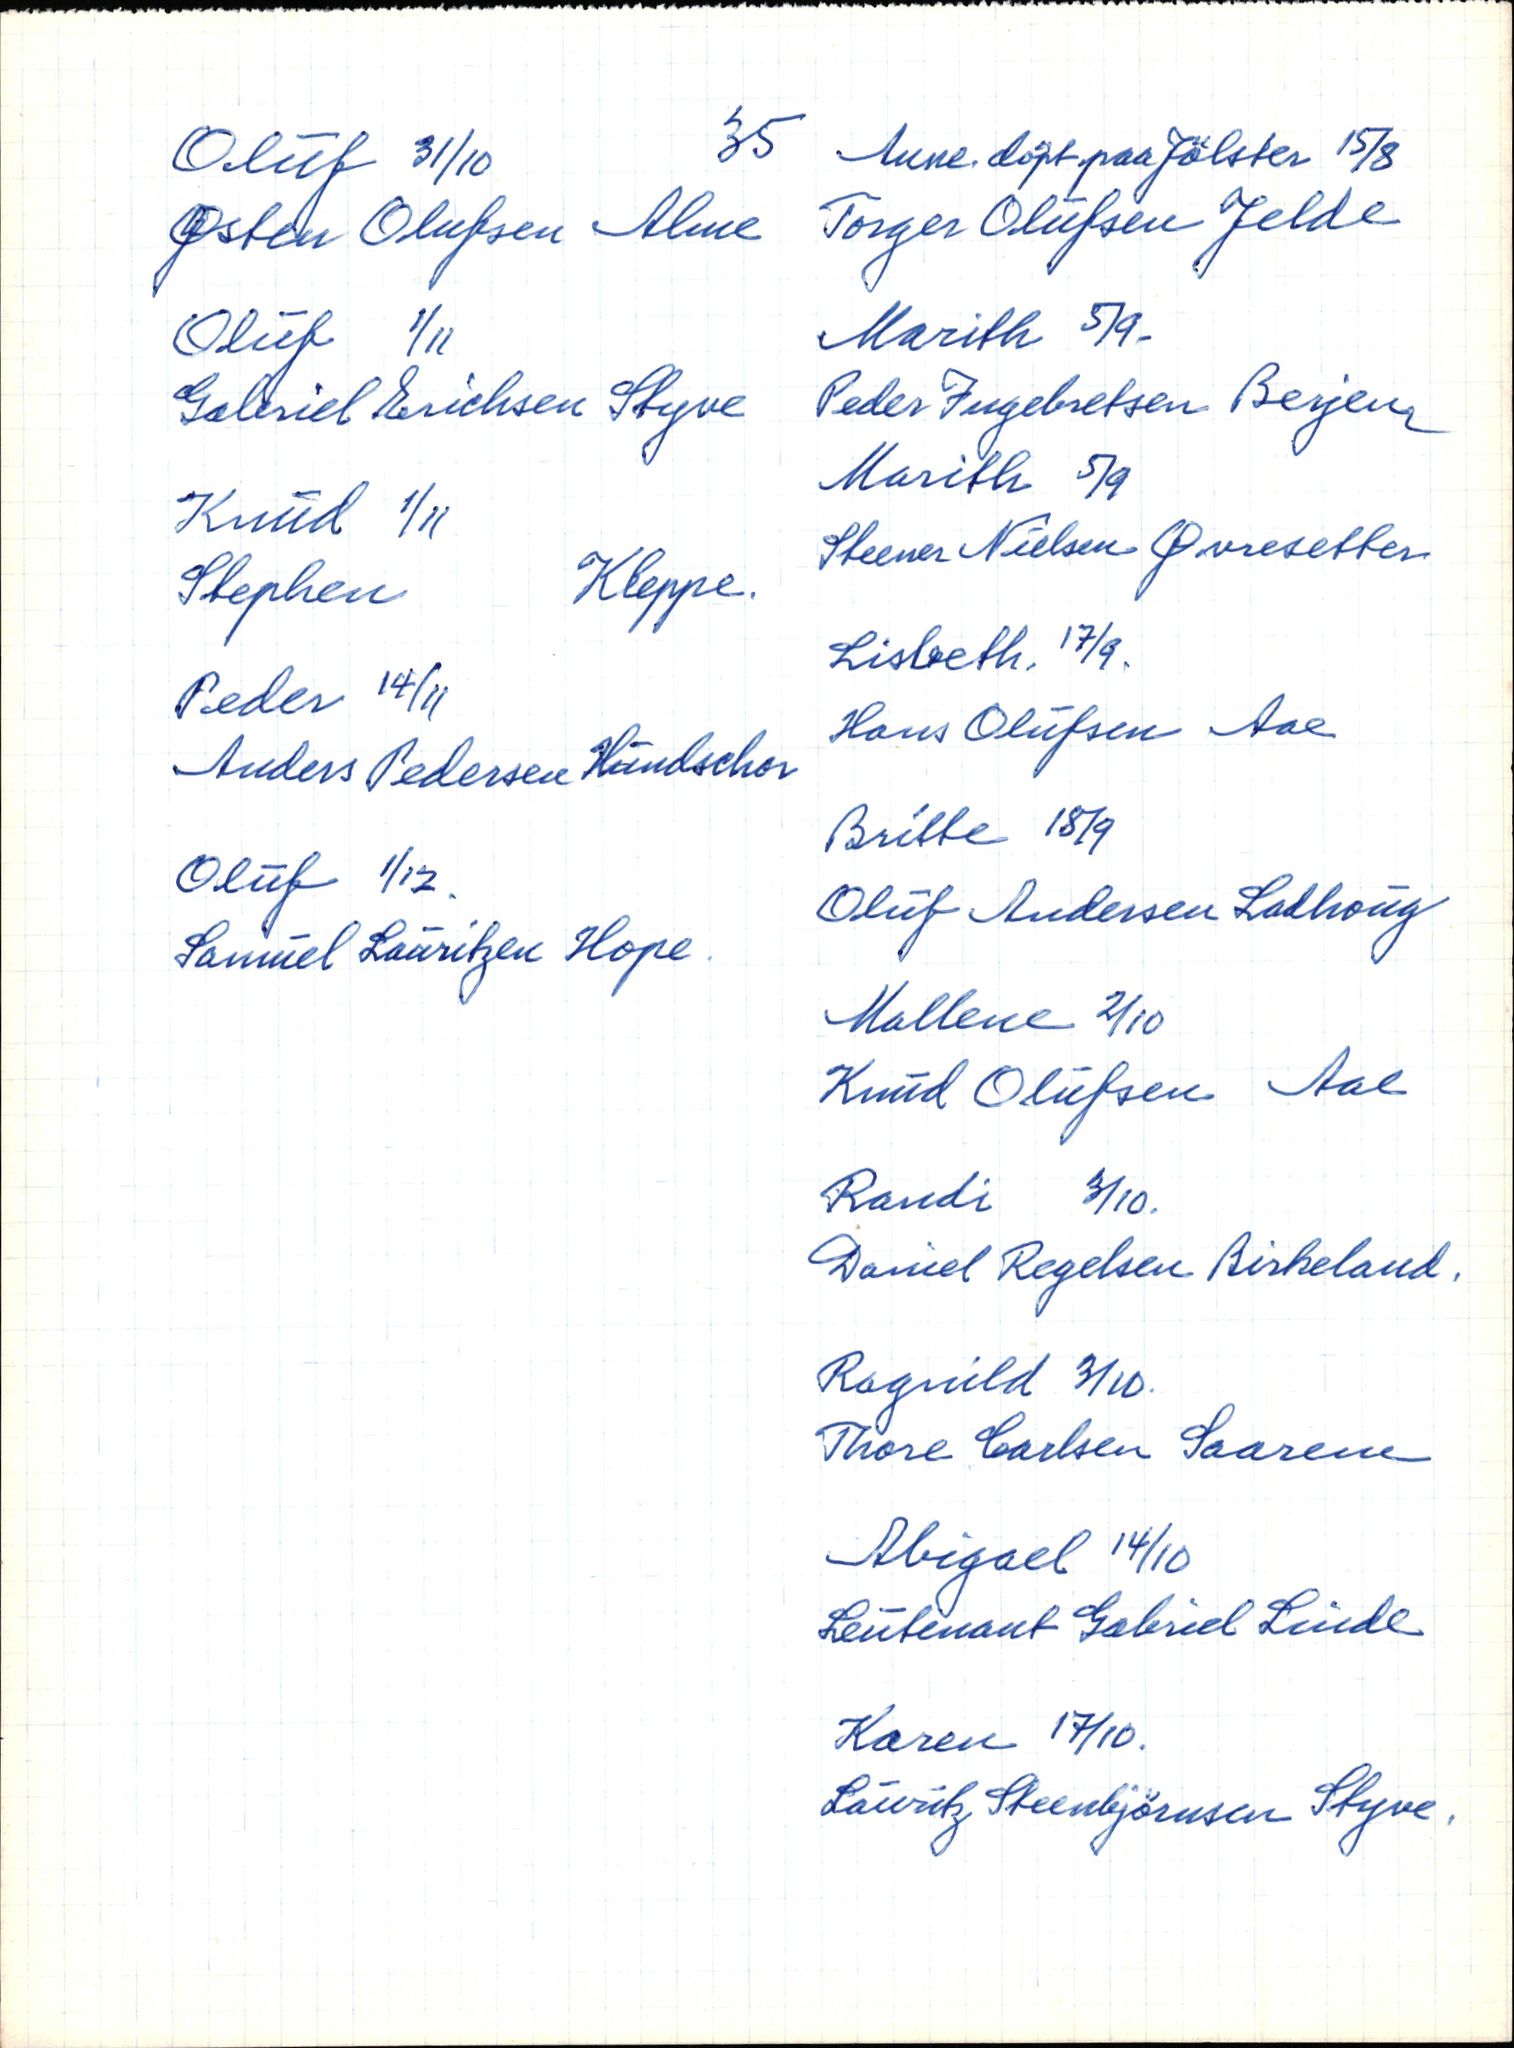 35
Oluf 31/10
Østen Olufsen Alme
Oluf 1/11
Gabriel Erichsen Styve
Knud 1/11
Stephen Kleppe.
Peder 14/11
Anders Pedersen Hundschor
Oluf 1/12.
Samuel Lauritzen Hope.
Anne. døpt paa Jölster 15/8
Torger Olufsen Jelde
Marith 5/9.
Peder Ingebretsen Berjem
Marith 5/9
Steener Nielsen Øvresetter
Lisbeth. 17/9.
Hans Olufsen Aae
Britte 18/9
Oluf Andersen Ladhoug
Mallene 2/10
Knud Olufsen Aae
Randi 3/10.
Daniel Regelsen Birkeland.
Ragnild 3/10.
Thore Carlsen Saarem
Abigael 14/10
Leutenant Gabriel Linde
Karen 17/10.
Lauritz Steenbjörnsen Styve.